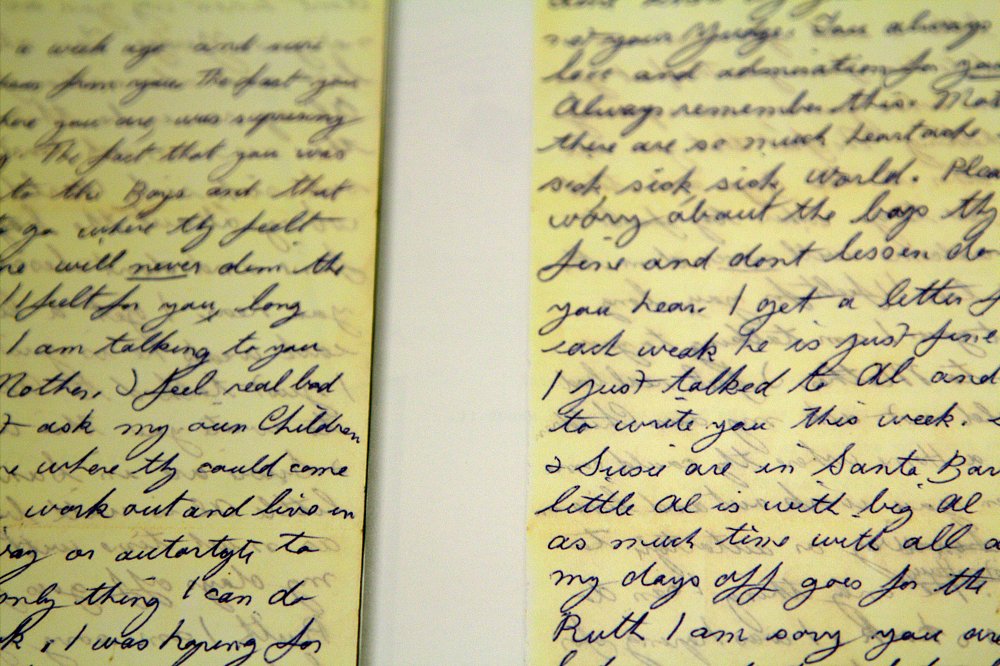 a week ago and sure
from you. The fact you
here you are was suprising
The fact that you was
to the Boys and that
go where thy feelt
will never dim the
I feelt for you, long
I am talking to you
Mother, I feel real bad
ask my own Children
where thy could come
work out and live in
or autortyti to
only thing I can do
I was hoping for
not your Judge. You always
love and admiration for you
Always remember this. Most
there are so much heartache
sick, sick, sick, world. Plea
worry about the boys thy
fine and dont lessen do
you hear. I get a letter f
each weak he is just fine
I just talked to Al and
to write you this week.
& Susie are in Santa Bar
little Al is with big Al
as much time with all a
my days off goes for the
Ruth I am sorry you are